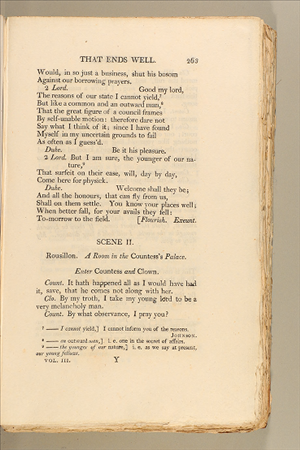 THAT ENDS WELL. 263
Would, in so just a business, shut his bosom
Against our borrowing prayers.
2 Lord. Good my lord,
The reasons of our state I cannot yield,⁷
But like a common and an outward man,⁸
That the great figure of a council frames
By self-unable motion: therefore dare not
Say what I think of it; since I have found
Myself in my uncertain grounds to fail
As often as I guess'd.
Duke. Be it his pleasure.
2 Lord. But I am sure, the younger of our na-
ture,⁹
That surfeit on their ease, will, day by day,
Come here for physick.
Duke. Welcome shall they be;
And all the honours, that can fly from us,
Shall on them settle. You know your places well;
When better fall, for your avails they fell:
To-morrow to the field. [Flourish. Exeunt.
SCENE II.
Rousillon. A Room in the Countess's Palace.
Enter Countess and Clown.
Count. It hath happened all as I would have had
it, save, that he comes not along with her.
Clo. By my troth, I take my young lord to be a
very melancholy man.
Count. By what observance, I pray you?
⁷ —— I cannot yield,] I cannot inform you of the reasons.
JOHNSON.
⁸ —— an outward man,] i. e. one in the secret of affairs.
⁹ —— the younger of our nature,] i. e. as we say at present,
our young fellows.
VOL. III. Y